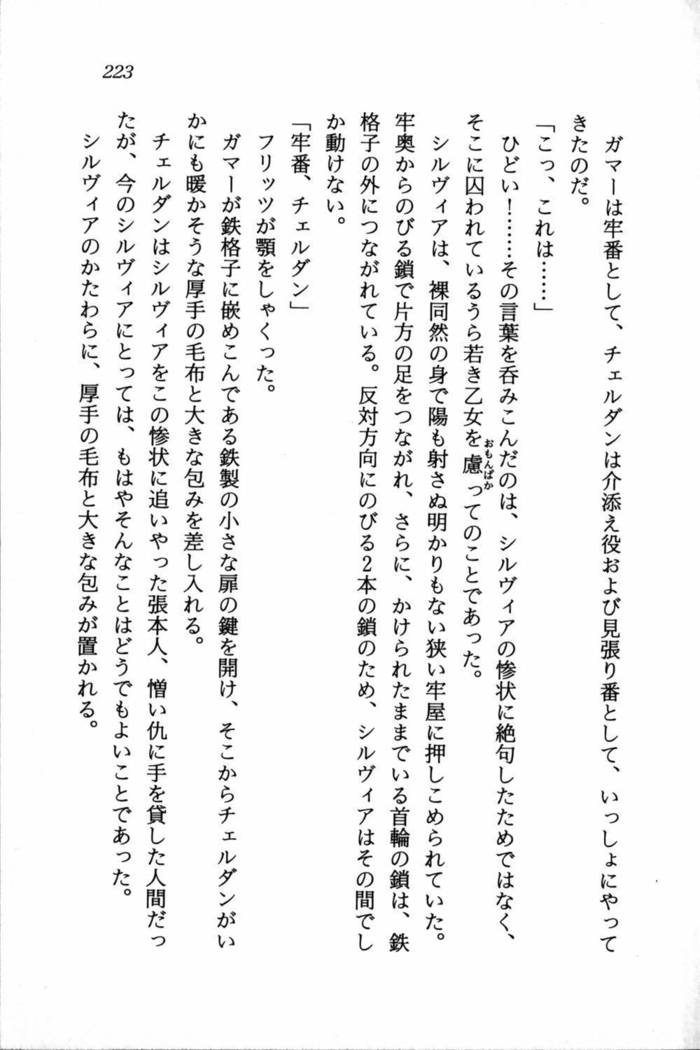 223
ガマーは牢番として、チェルダンは介添え役および見張り番として、いっしょにやって
きたのだ。
「こっ、これは……」
ひどい！……その言葉を呑みこんだのは、シルヴィアの惨状に絶句したためではなく、
そこに囚われているうら若き乙女を慮ってのことであった。
おもんぱか
シルヴィアは、裸同然の身で陽も射さぬ明かりもない狭い牢屋に押しこめられていた。
牢奥からのびる鎖で片方の足をつながれ、さらに、かけられたままでいる首輪の鎖は、鉄
格子の外につながれている。反対方向にのびる2本の鎖のため、シルヴィアはその間でし
か動けない。
「牢番、チェルダン」
フリッツが顎をしゃくった。
ガマーが鉄格子に嵌めこんである鉄製の小さな扉の鍵を開け、そこからチェルダンがい
かにも暖かそうな厚手の毛布と大きな包みを差し入れる。
チェルダンはシルヴィアをこの惨状に追いやった張本人、憎い仇に手を貸した人間だっ
たが、今のシルヴィアにとっては、もはやそんなことはどうでもよいことであった。
シルヴィアのかたわらに、厚手の毛布と大きな包みが置かれる。